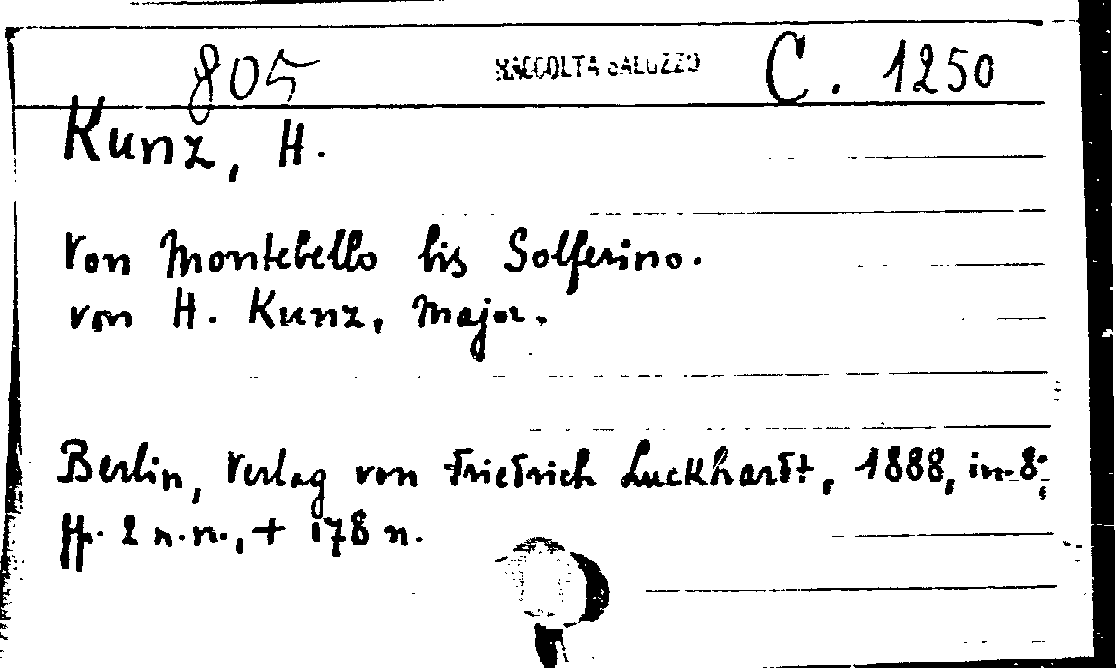 805 RACCOLTA SALUZZO C. 1250
Kunz, H.
Von Montebello bis Solferino.
von H. Kunz, Major.
Berlin, Verlag von Friedrich Luckhardt, 1888, in-8°,
pp. 2 n.n., + 178 n.